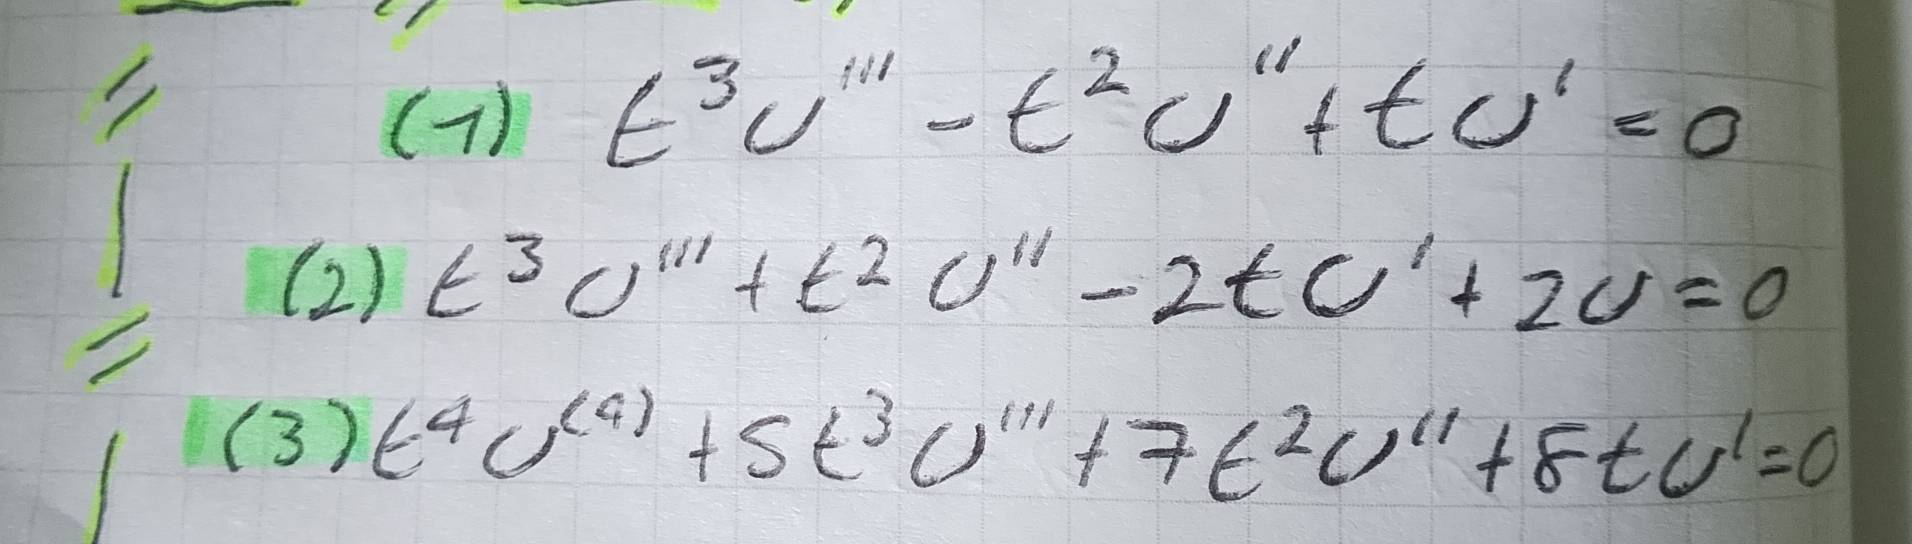 (1) t³u''' - t²u'' + tu' = 0
(2) t³u''' + t²u'' - 2tu' + 2u = 0
(3) t⁴u⁽⁴⁾ + 5t³u''' + 7t²u'' + 8tu' = 0